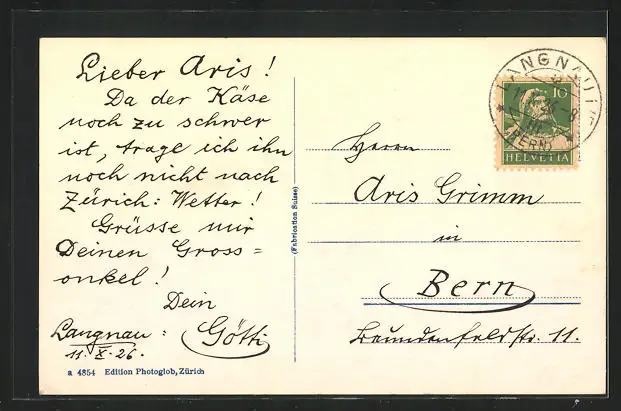 Lieber Aris!
Da der Käse
noch zu schwer
ist, trage ich ihn
noch nicht nach
Zürich: Wetter!
Grüsse mir
Deinen Gross=
onkel!
Dein
Götti
Langnau:
11. X. 26.
a 4854 Edition Photoglob, Zürich
(Fabrication Suisse)
LANGNAU
(BERN)
10
HELVETIA
Herrn
Aris Grimm
in
Bern
11.